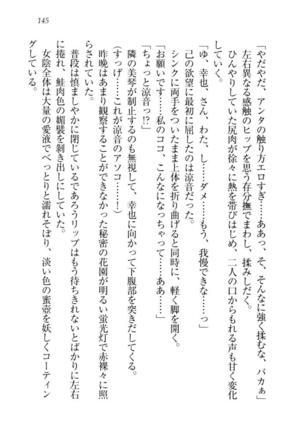 145
「やだやだ、アンタの触り方エロすぎ……ああっ、そ、そんなに強く揉むな、バカぁ」
左右異なる感触のヒップを思う存分撫でまわし、揉みしだく。
ひんやりしていた尻肉が徐々に熱を帯びはじめ、二人の口からもれる声も甘く変化
していく。
「ゆ、幸也、さん、わた、し……ダメ……もう、我慢できな……っ」
己の欲望に最初に屈したのは涼音だった。
シンクに両手をついたまま上体を折り曲げると同時に、軽く脚を開く。
「お願いです……私のココ、こんなになっちゃって……ああ……」
「ちょっと涼音⁉」
隣の美琴の声も無視して、幸也に向かって下腹部を突きだしてくる。
(すっげ……これが涼音のアソコ……！)
昨晩はあまり観察することができなかった秘密の花園が明るい蛍光灯で赤裸々に照
らされていた。
普段は慎ましやかに閉じているであろうリップはもう待ちきれないとばかりに左右
に捲れ、鮭肉色の媚襞を剥きだしにしていた。
女陰全体は大量の愛液でべっとりと濡れそぼり、淡い色の蜜壺を妖しくコーティン
グしている。